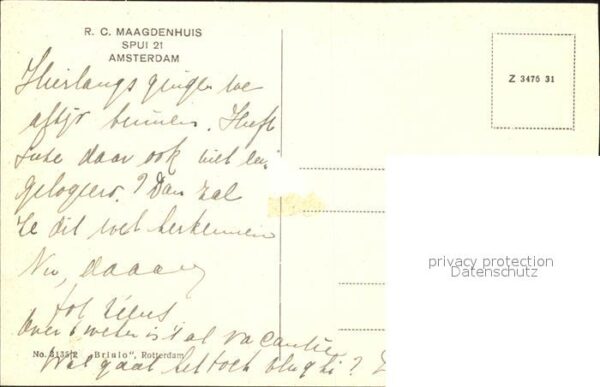 R. C. MAAGDENHUIS
SPUI 21
AMSTERDAM
Z 3476 31
Hierlangs gingen we
altijd binnen. Heeft
daar ook niet
gelogeerd? Dan zal
ze dit wel herkennen
Nu, daaag
tot ziens
Over 6 weken is 't al vacantie
No. 3135/2 „Briulo”, Rotterdam
Wat gaat het toch vlug hè?
privacy protection
Datenschutz